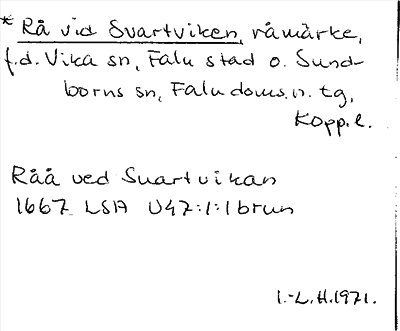 * Rå vid Svartviken, råmärke,
f.d. Vika sn, Falu stad o. Sund-
borns sn, Falu doms.n. tg,
Kopp. l.
Råå ved Suartuikan
1667 LSA U47:1:1 brun
I.-L.H. 1971.